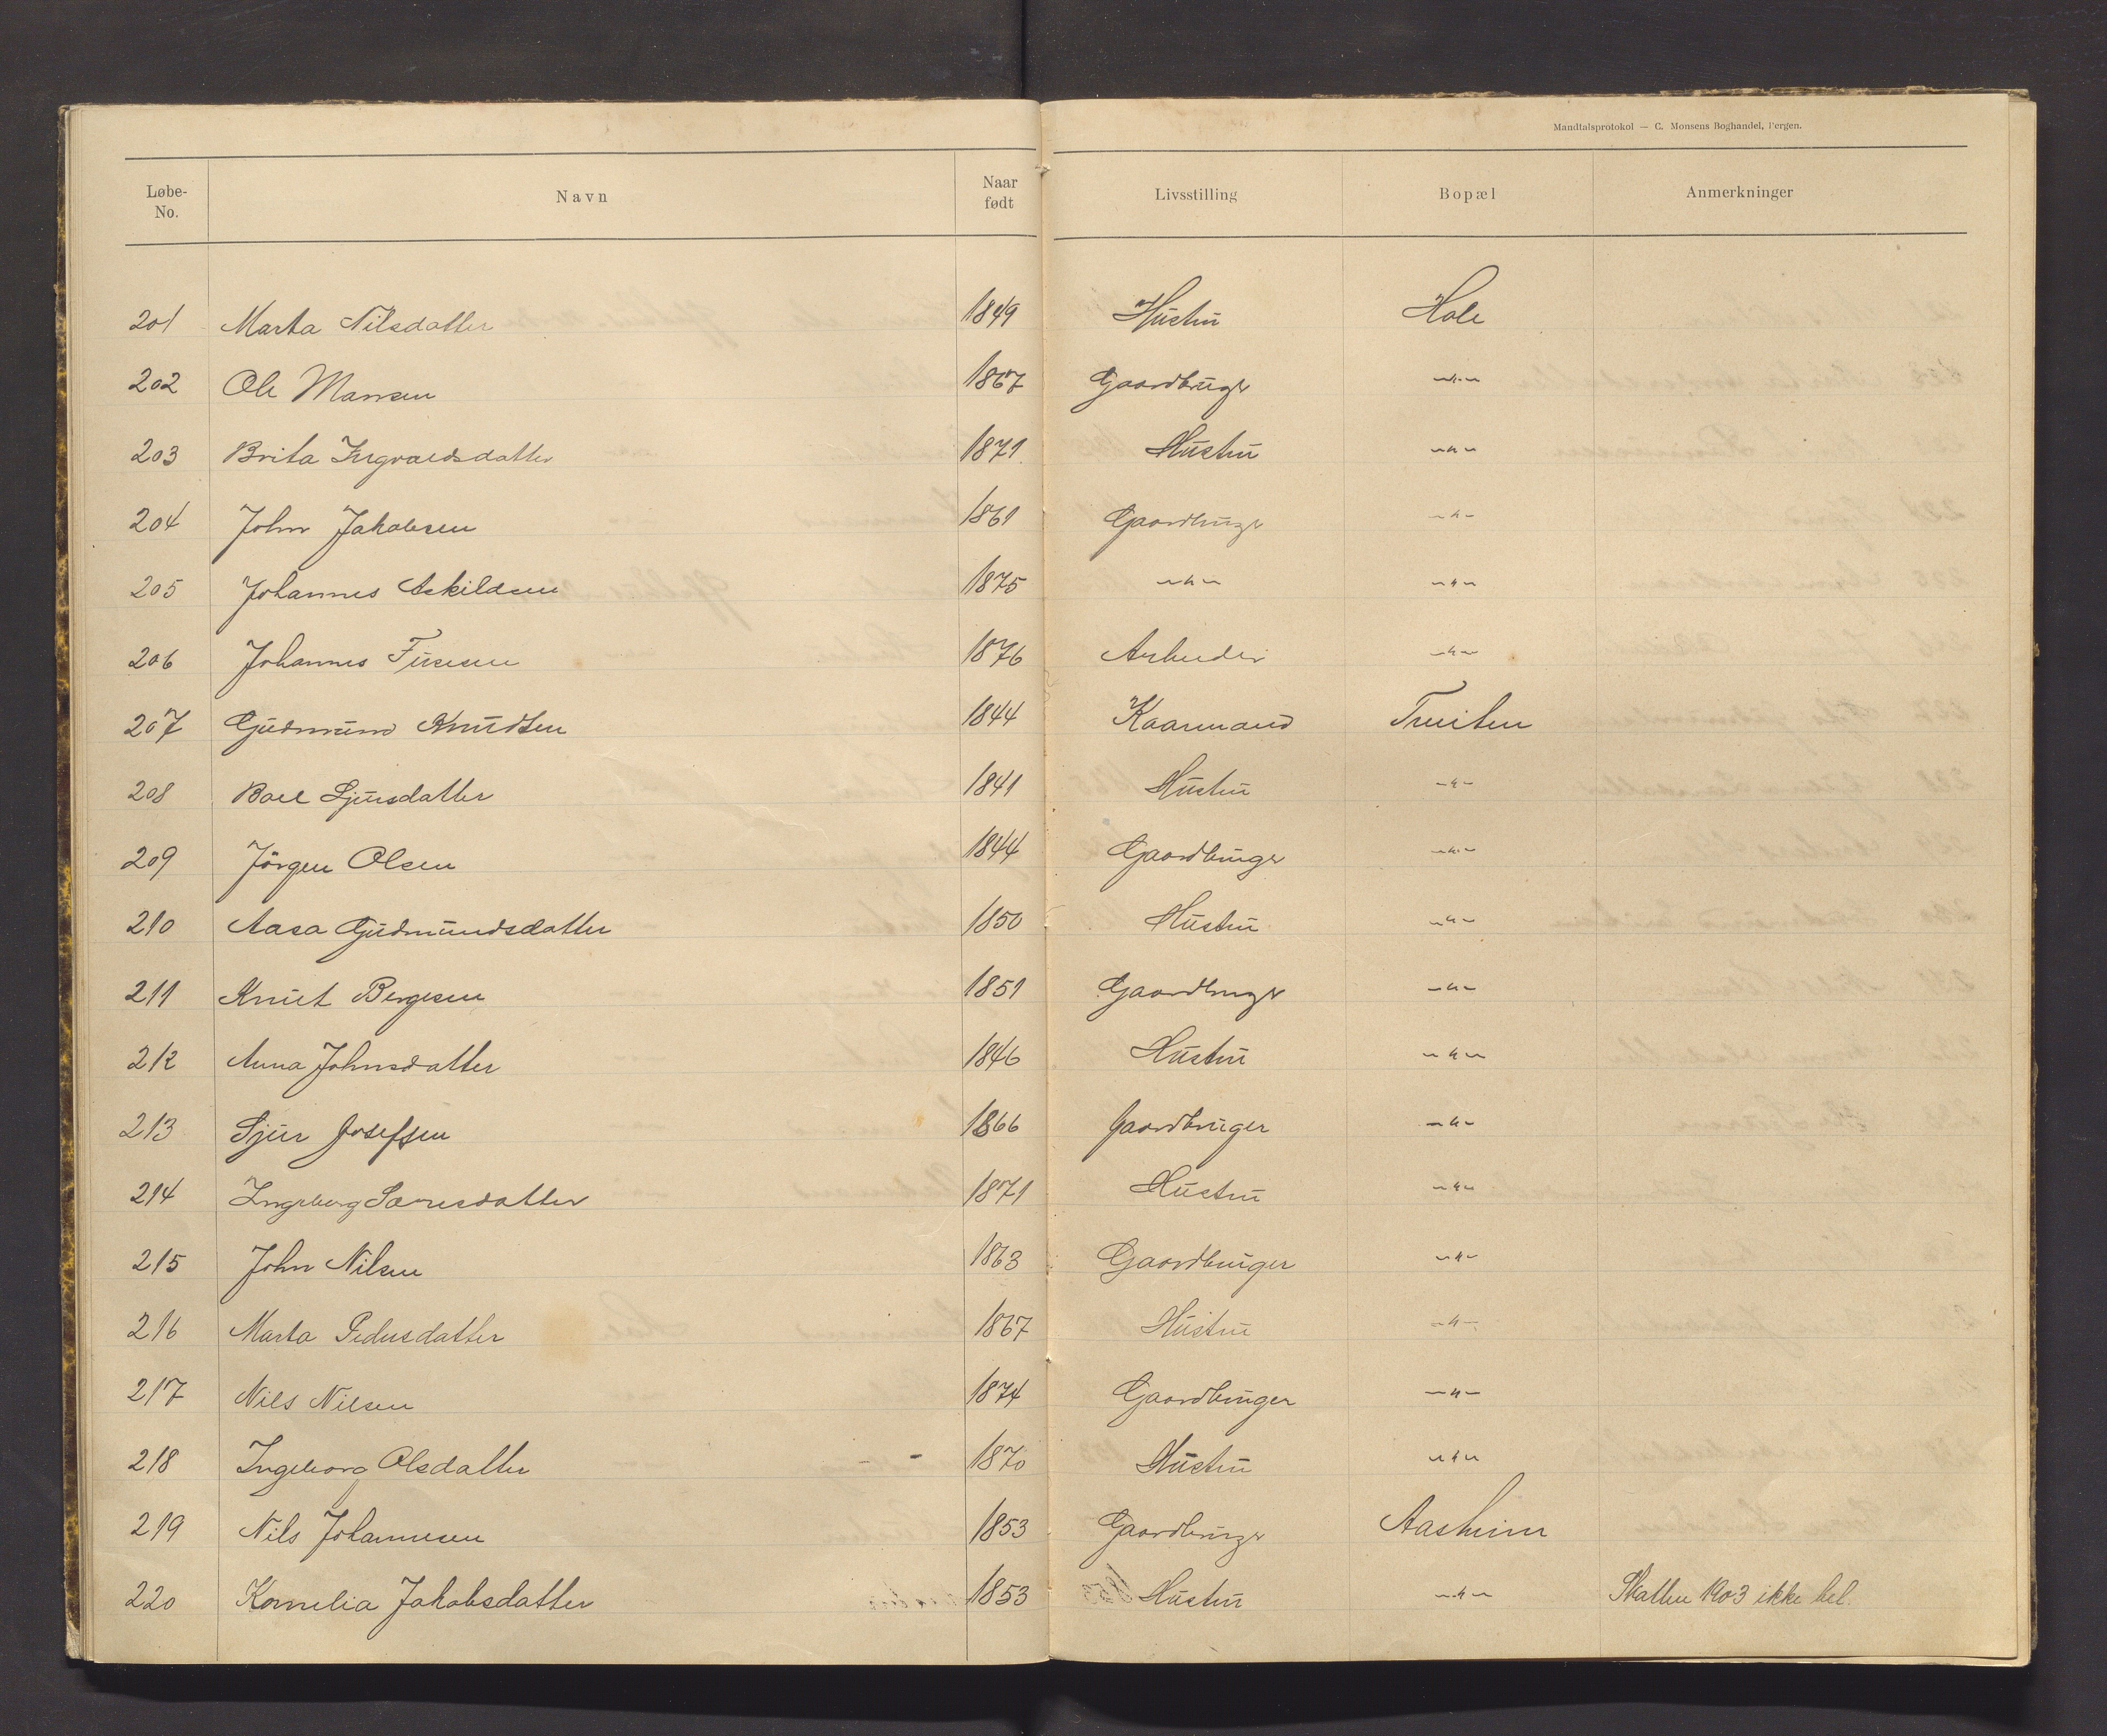 Mandtalsprotokol — C. Monsens Boghandel, Bergen.
Løbe-No. Navn Naar født Livsstilling Bopæl Anmerkninger
201 Marta Nilsdatter 1849 Hustru Hole
202 Ole Mansen 1867 Gaardbruger —"—
203 Brita Ingvaldsdatter 1871 Hustru —"—
204 John Jakobsen 1861 Gaardbruger —"—
205 Johannes Askildsen 1875 —"— —"—
206 Johannes 1876 Arbeider —"—
207 Gudmund Knudsen 1844 Kaarmand Tveiten
208 Boel Sjursdatter 1841 Hustru —"—
209 Jörgen Olsen 1844 Gaardbruger —"—
210 Aasa Gudmundsdatter 1850 Hustru —"—
211 Knut Bergesen 1851 Gaardbruger —"—
212 Anna Johnsdatter 1846 Hustru —"—
213 Sjur Josefsen 1866 Gaardbruger —"—
214 Ingeborg 1871 Hustru —"—
215 John Nilsen 1863 Gaardbruger —"—
216 Marta Pedersdatter 1867 Hustru —"—
217 Nils Nilsen 1874 Gaardbruger —"—
218 Ingeborg Olsdatter 1870 Hustru —"—
219 Nils Johannesen 1853 Gaardbruger Aasheim
220 Kornelia Jakobsdatter 1853 Hustru —"— Skatten 1903 ikke bet.